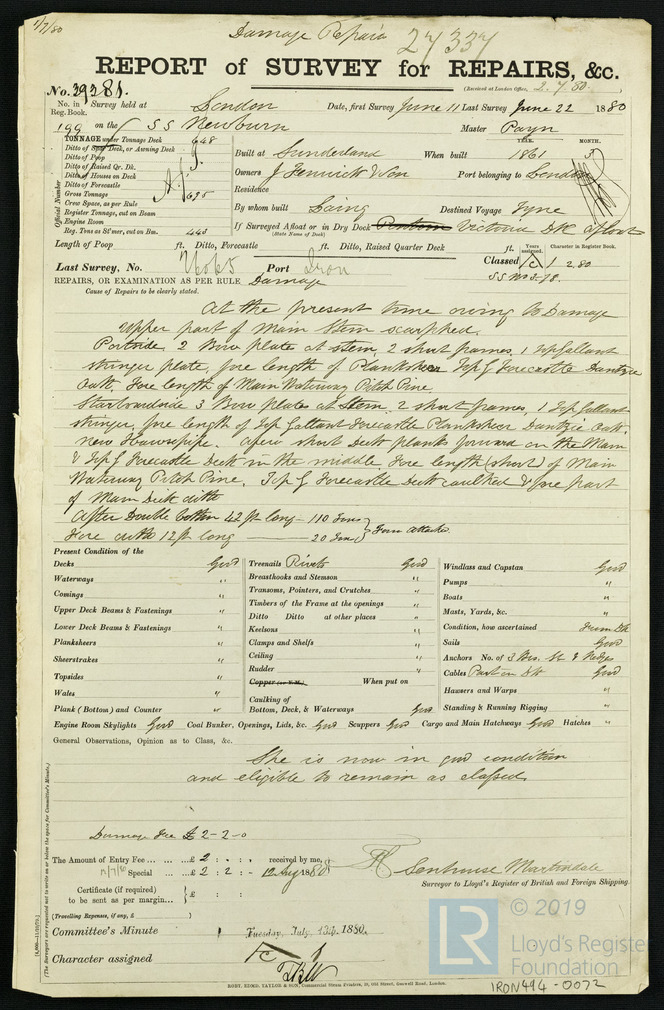 1/7/80
Damage Repairs 27337
REPORT of SURVEY for REPAIRS, &c.
No. 39381. (Received at London Office, 2.7.80.)
No. in Reg. Book. Survey held at London Date, first Survey June 11 Last Survey June 22 1880
199 on the SS Newburn Master Payn
TONNAGE under Tonnage Deck 648
Ditto of Spar Deck, or Awning Deck
Ditto of Poop
Ditto of Raised Qr. Dk.
Ditto of Houses on Deck
Ditto of Forecastle
Gross Tonnage 695
Crew Space, as per Rule
Register Tonnage, cut on Beam
Engine Room
Reg. Tons as St'mer, cut on Bm. 443
Official Number
YEAR. MONTH.
Built at Sunderland When built 1861 5
Owners J Fenwick & Son Port belonging to London
Residence
By whom built Laing Destined Voyage Tyne
If Surveyed Afloat or in Dry Dock Victoria Dk afloat
(State Name of Dock)
Length of Poop ft. Ditto, Forecastle ft. Ditto, Raised Quarter Deck ft.
Years assigned. Character in Register Book.
Last Survey, No. 7665 Port Iron Classed C 1 2,80
SS No 3-78.
REPAIRS, OR EXAMINATION AS PER RULE Damage
Cause of Repairs to be clearly stated.
At the present time owing to Damage
Upper part of Main Stem scarphed.
Portside, 2 Bow plates at stem, 2 short frames, 1 TopGallant
stringer plate, fore length of Planksheer Top G Forecastle Dantzic
Oak Fore length of Main Waterway Pitch Pine
Starboardside 3 Bow plates at Stem, 2 short frames, 1 TopGallant
stringer, fore length of Top Gallant Forecastle Planksheer Dantzic Oak,
new Hawsepipe. A few short Deck planks forward on the Main
& Top G Forecastle Deck in the middle Fore length (short) of Main
Waterway Pitch Pine. Top G Forecastle Deck caulked & fore part
of Main Deck ditto
After Double bottom 42 ft long — 110 Tons
Fore ditto 12 ft long — 20 Tons } Form attached
Present Condition of the
Decks Good
Waterways "
Comings "
Upper Deck Beams & Fastenings "
Lower Deck Beams & Fastenings "
Planksheers "
Sheerstrakes "
Topsides "
Wales "
Plank (Bottom) and Counter "
Treenails Rivets Good
Breasthooks and Stemson "
Transoms, Pointers, and Crutches "
Timbers of the Frame at the openings "
Ditto Ditto at other places "
Keelsons "
Clamps and Shelfs "
Ceiling "
Rudder "
Copper (or Y.M.) When put on
Caulking of
Bottom, Deck, & Waterways Good
Windlass and Capstan Good
Pumps "
Boats "
Masts, Yards, &c. "
Condition, how ascertained From Dk
Sails Good
Anchors No. of 3 Brs, St & Kedge
Cables Part on Dk Good
Hawsers and Warps "
Standing & Running Rigging "
Engine Room Skylights Good Coal Bunker, Openings, Lids, &c. Good Scuppers Good Cargo and Main Hatchways Good Hatches "
General Observations, Opinion as to Class, &c.
She is now in good condition
and eligible to remain as classed
Damage Fee £2-2-0
The Amount of Entry Fee £ 2 : . : . received by me,
Special £ 2 : 2 : - 1880
Certificate (if required) to be sent as per margin £ : :
(Travelling Expenses, if any, £ )
Senhouse Martindale
Surveyor to Lloyd's Register of British and Foreign Shipping.
Committee's Minute Tuesday, July, 13th, 1880.
Character assigned C 1
(The Surveyors are requested not to write on or below the space for Committee's Minute.)
ROBT. STOCK. TAYLOR & SON, Commercial Steam Printers, 19, Old Street, Goswell Road, London.
© 2019
LR Lloyd's Register
Foundation
IRON494-0072